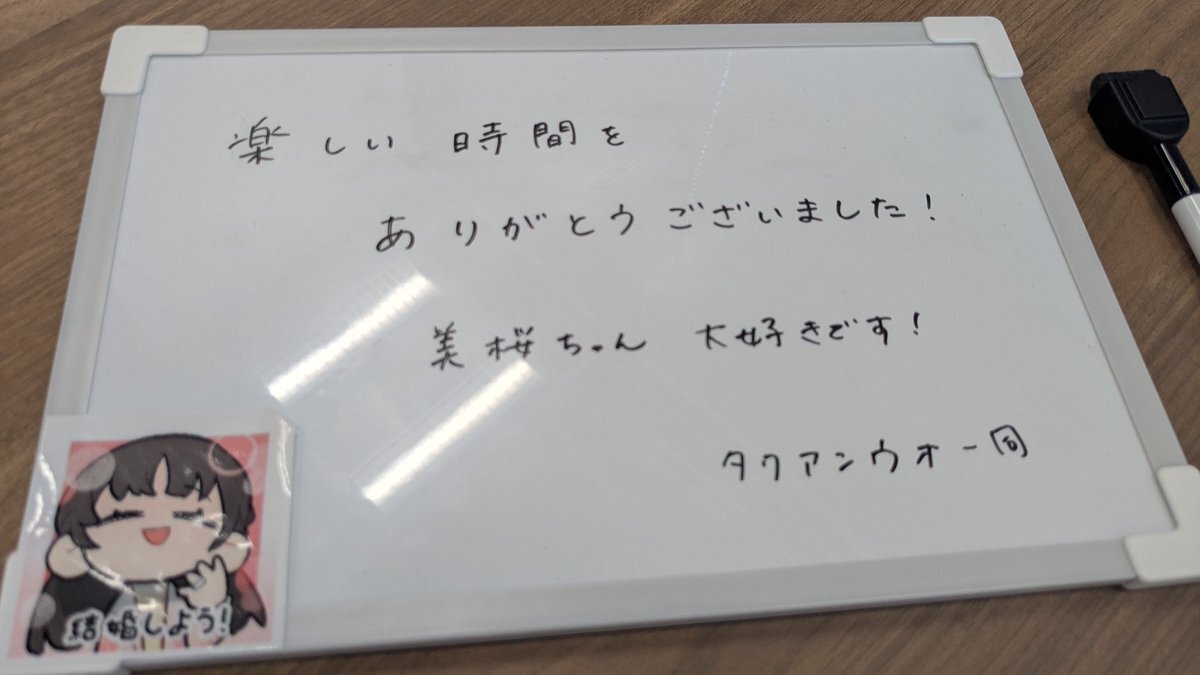 楽しい時間を
ありがとうございました!
美桜ちゃん 大好きです!
タクアンウオ一同
結婚しよう!